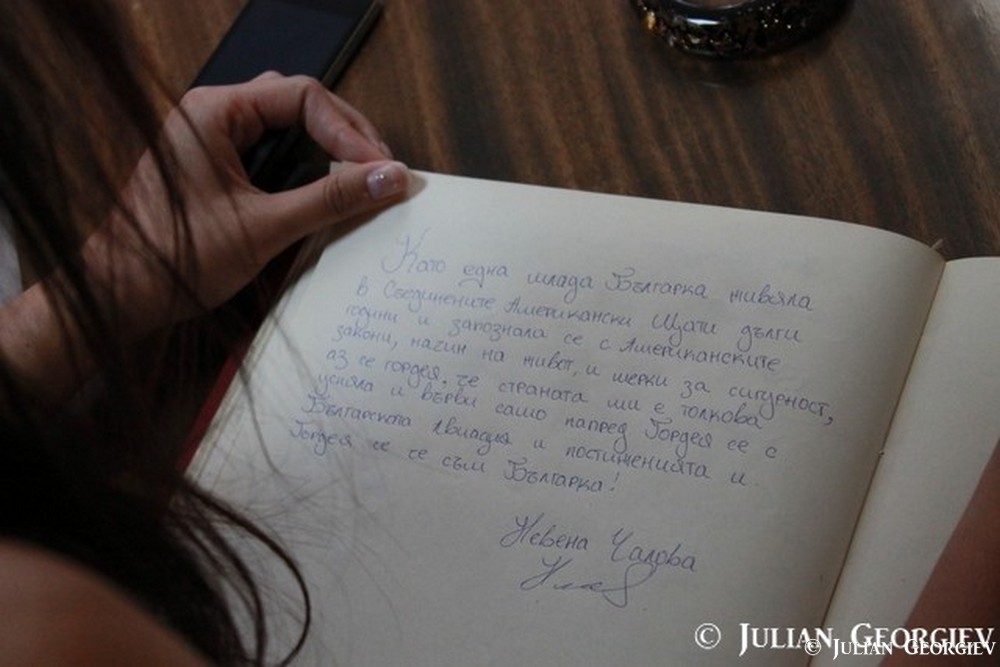 Като една млада Българка живяла
в Съединените Американски Щати дълги
години и запознала се с Американските
закони, начин на живот, и мерки за сигурност,
аз се гордея, че страната ми е толкова
успяла и върви само напред. Гордея се с
Българската Авиация и постиженията и.
Гордея се че съм Българка!
Невена Чалова
© Julian Georgiev
© Julian Georgiev